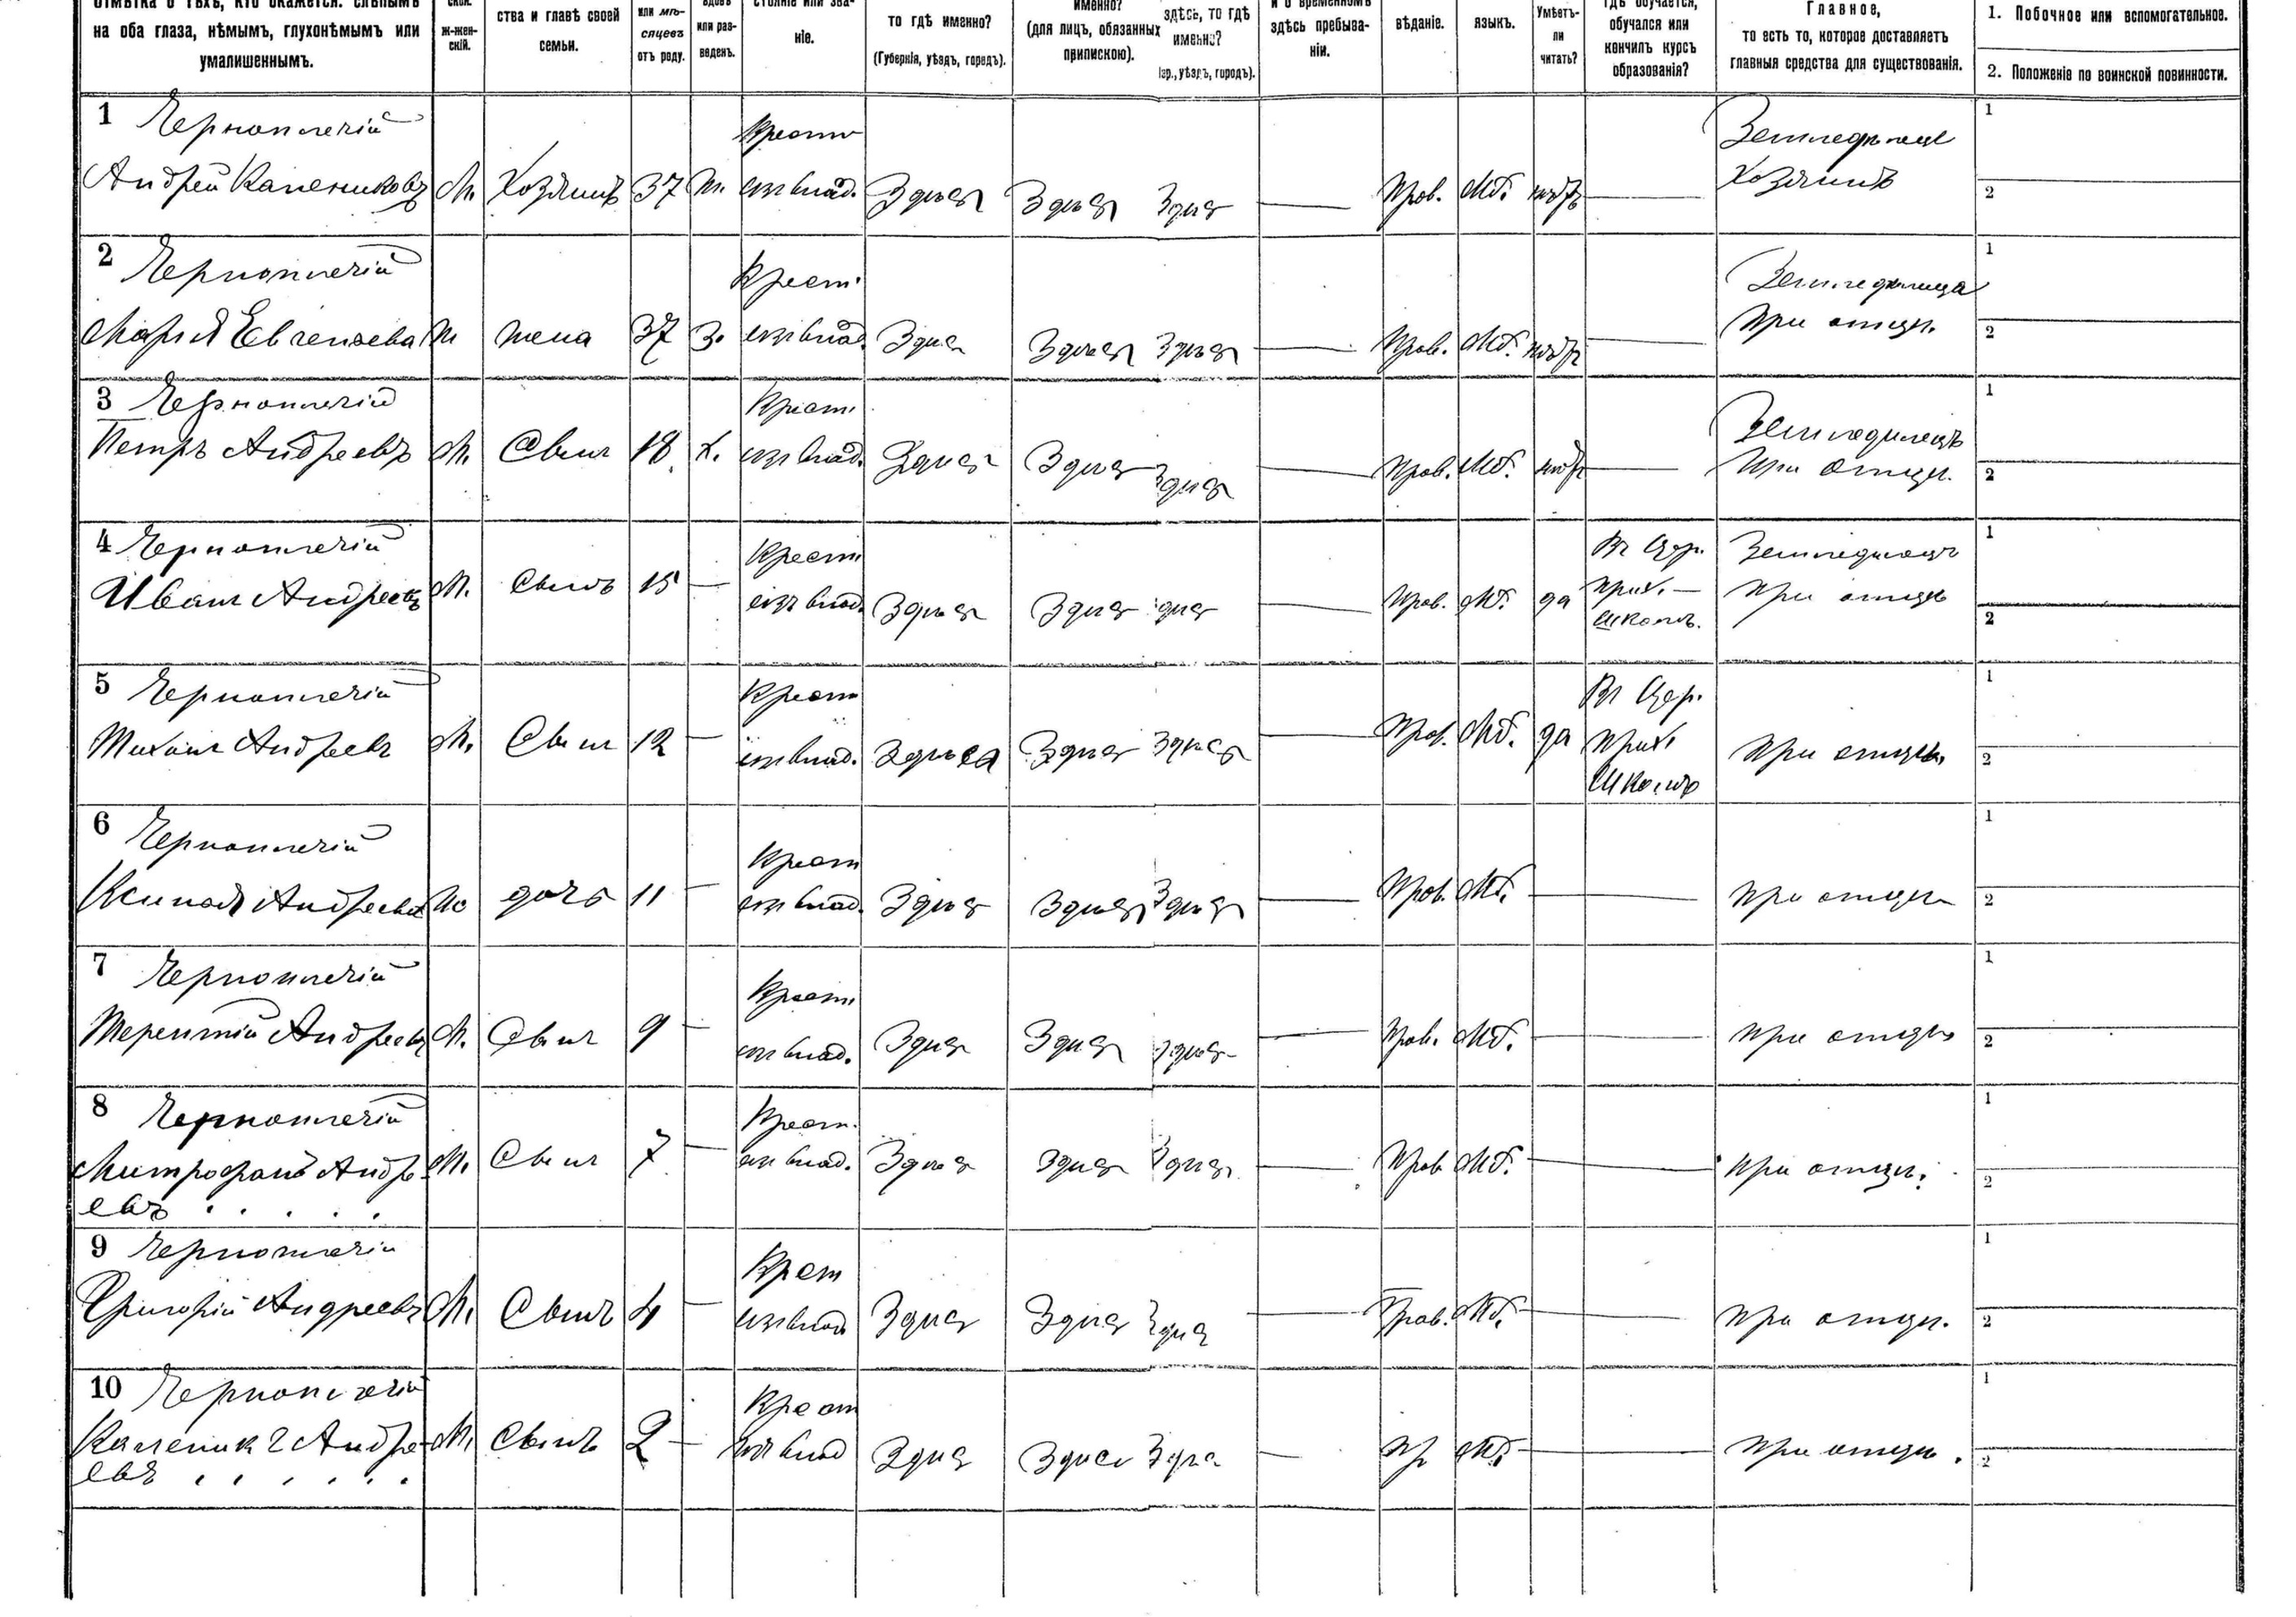 на оба глаза, нѣмымъ, глухонѣмымъ или
умалишеннымъ.
ж-жен-
скій.
ства и главѣ своей
семьи.
или мѣ-
сяцевъ
отъ роду.
или раз-
веденъ.
ніе.
то гдѣ именно?
(Губернія, уѣздъ, городъ).
именно?
(для лицъ, обязанныхъ
припискою).
здѣсь, то гдѣ
именно?
уѣздъ, городъ).
и о временномъ
здѣсь пребыва-
ніи.
вѣданіе.
языкъ.
Умѣетъ-
ли
читать?
гдѣ обучается,
обучался или
кончилъ курсъ
образованія?
Главное,
то есть то, которое доставляетъ
главныя средства для существованія.
1. Побочное или вспомогательное.
2. Положеніе по воинской повинности.
1 Черноплечій
Андрей Калениковъ М. Хозяинъ 37 Крест. изъ влад. Здѣсь Здѣсь Здѣсь — Прав. Мб. нѣтъ — Земледѣлецъ Хозяинъ 1 2
2 Черноплечій
Марія Евгеньева жена 37 З. Крест. изъ влад. Здѣсь Здѣсь Здѣсь — Прав. Мб. нѣтъ — при отцѣ. 1 2
3 Черноплечій
Петръ Андреевъ М. Сынъ 18 Х. Крест. изъ влад. Здѣсь Здѣсь Здѣсь — Прав. Мб. нѣтъ — Земледѣлецъ при отцѣ. 1 2
4 Черноплечій
Иванъ Андреевъ М. Сынъ 15 — Крест. изъ влад. Здѣсь Здѣсь — Прав. Мб. да Въ Цер. прих. школѣ. Земледѣлецъ при отцѣ 1 2
5 Черноплечій
Михаилъ Андреевъ М. Сынъ 12 — Крест. изъ влад. Здѣсь Здѣсь Здѣсь — Прав. Мб. да Въ Цер. прих. школѣ при отцѣ. 1 2
6 Черноплечій
Андреева дочь 11 — Крест. изъ влад. Здѣсь Здѣсь Здѣсь — Прав. Мб. — при отцѣ 1 2
7 Черноплечій
Терентій Андреевъ М. Сынъ 9 — Крест. изъ влад. Здѣсь Здѣсь Здѣсь — Прав. Мб. — при отцѣ 1 2
8 Черноплечій
Митрофанъ Андре-
евъ М. Сынъ 7 — Крест. изъ влад. Здѣсь Здѣсь Здѣсь — Прав. Мб. — при отцѣ. 1 2
9 Черноплечій
Григорій Андреевъ М. Сынъ 4 — Крест. изъ влад. Здѣсь Здѣсь Здѣсь — Прав. Мб. — при отцѣ. 1 2
10 Черноплечій
Каленикъ 2 Андре-
евъ М. Сынъ 2 — Крест. изъ влад. Здѣсь Здѣсь Здѣсь — Пр Мб. — при отцѣ. 1 2